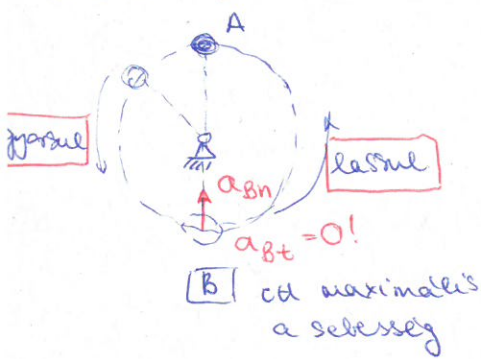 A
gyorsul
a_Bn
lassul
a_Bt = 0!
B itt maximális
a sebesség